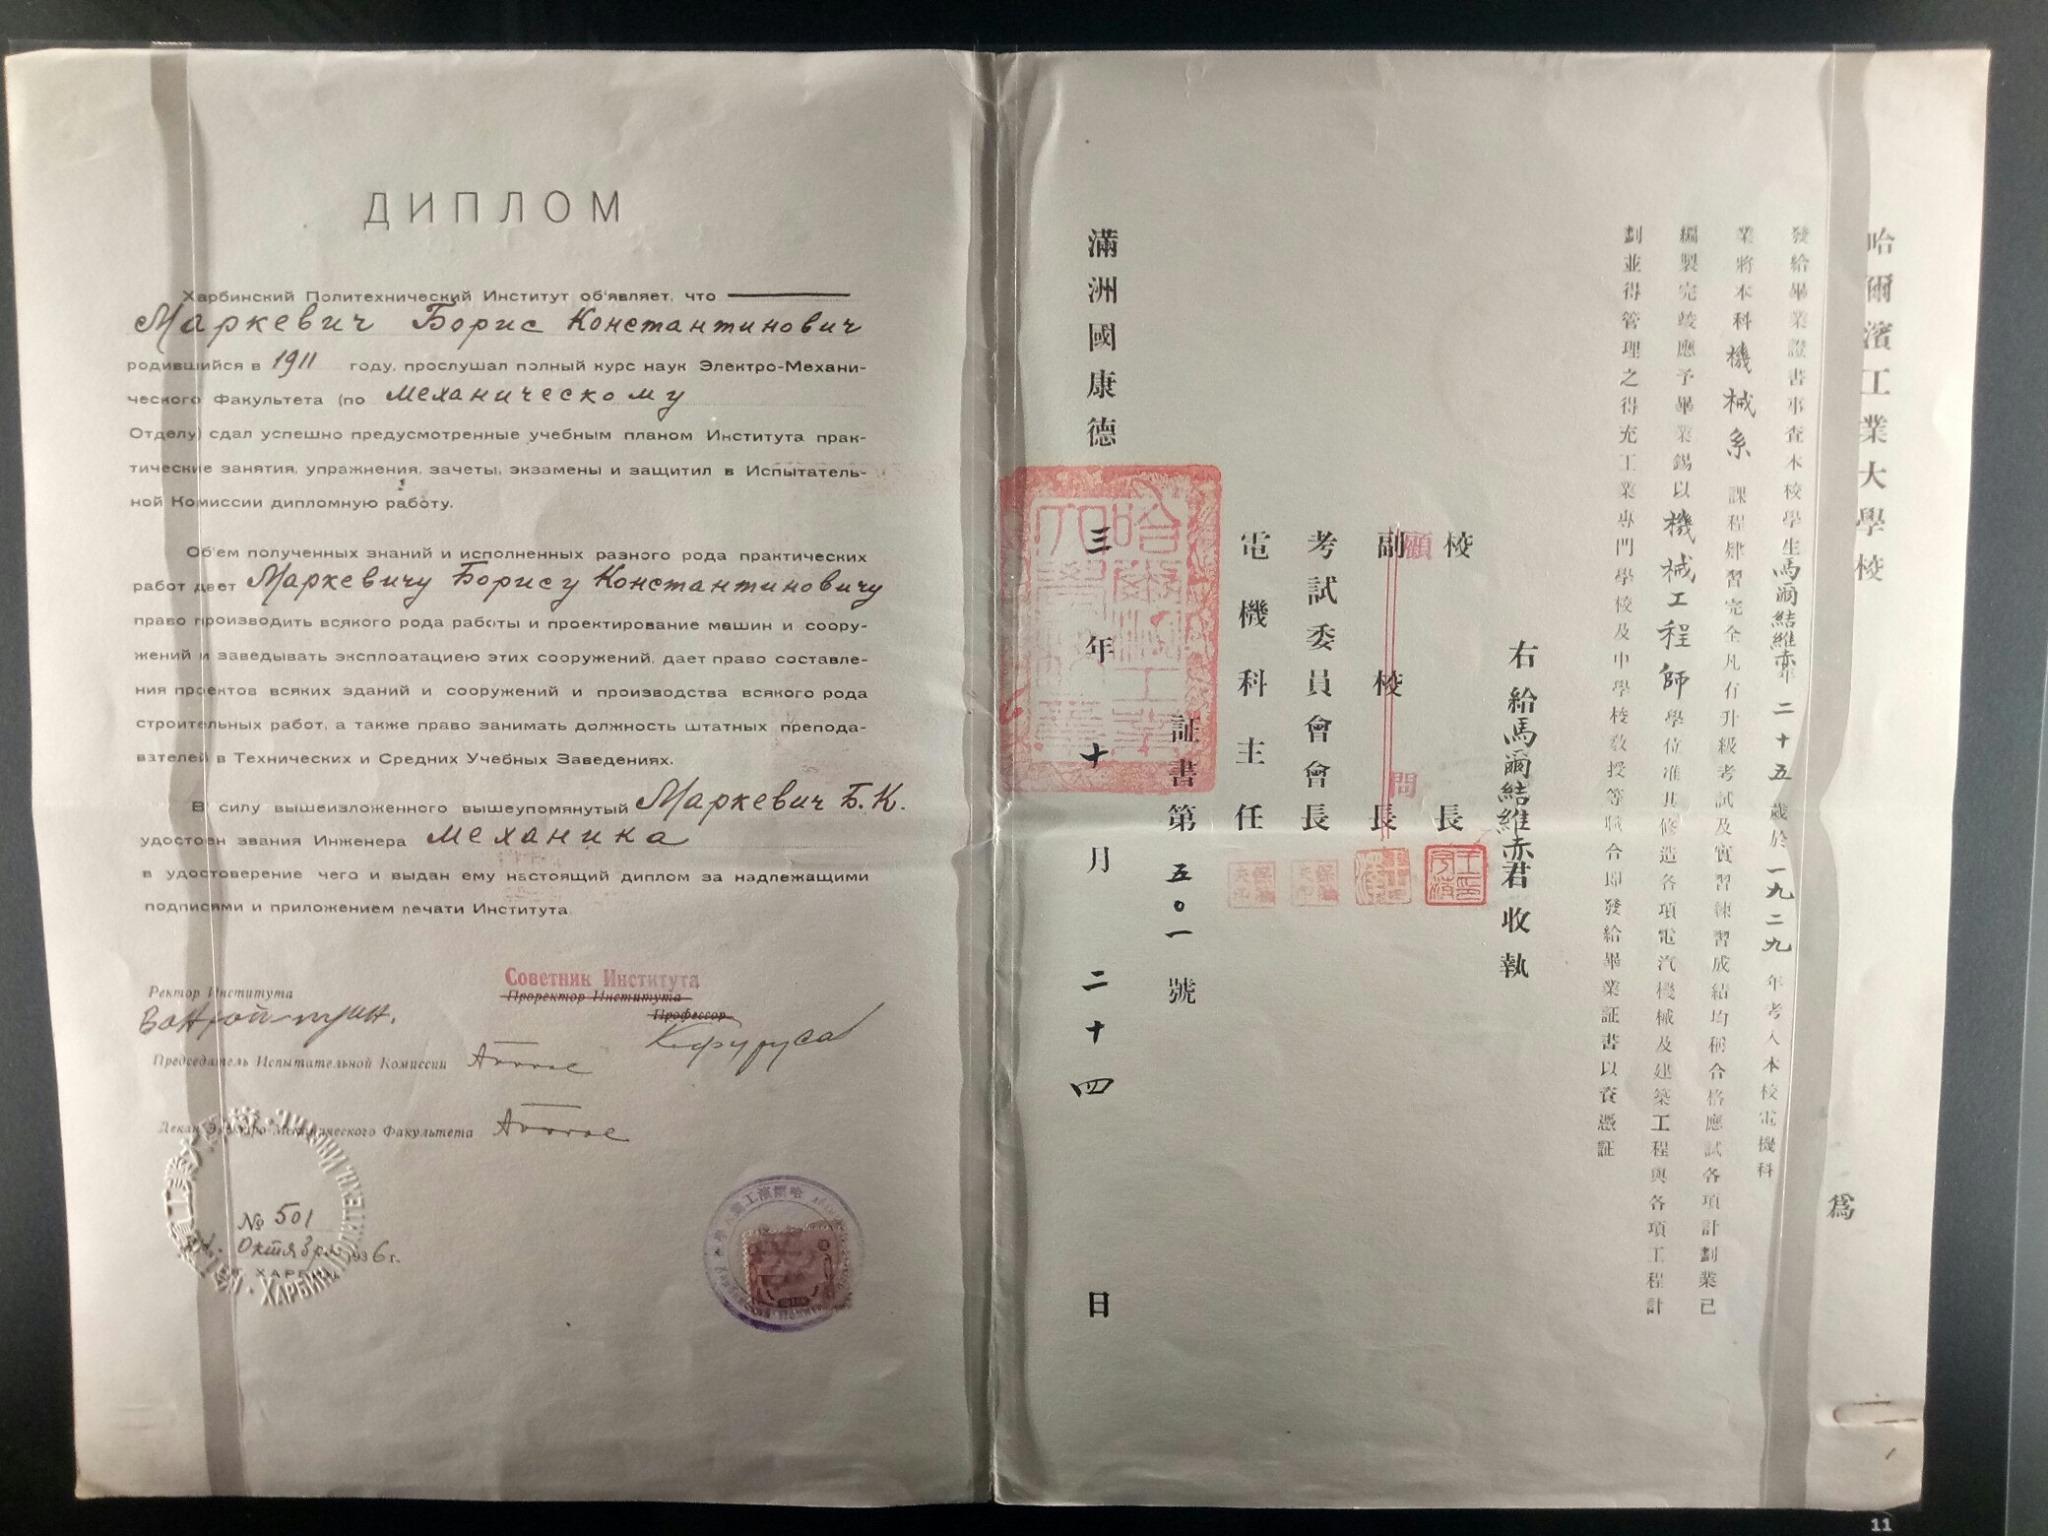 ДИПЛОМ
Харбинский Политехнический Институт об'являет, что
Маркевич Борис Константинович
родившийся в 1911 году, прослушал полный курс наук Электро-Механи-
ческого Факультета (по механическому
Отделу) сдал успешно предусмотренные учебным планом Института прак-
тические занятия, упражнения, зачеты, экзамены и защитил в Испытатель-
ной Комиссии дипломную работу.
Об'ем полученных знаний и исполненных разного рода практических
работ дает Маркевичу Борису Константиновичу
право производить всякого рода работы и проектирование машин и соору-
жений и заведывать эксплоатациею этих сооружений, дает право составле-
ния проектов всяких зданий и сооружений и производства всякого рода
строительных работ, а также право занимать должность штатных препода-
вателей в Технических и Средних Учебных Заведениях.
В силу вышеизложенного вышеупомянутый Маркевич Б.К.
удостоен звания Инженера механика
в удостоверение чего и выдан ему настоящий диплом за надлежащими
подписями и приложением печати Института.
Советник Института
Ректор Института
Проректор Института
Профессор
Председатель Испытательной Комиссии
Декан Электро-Механического Факультета
№ 501
Октября 1936 г.
ХАРБИН
哈爾濱工業大學校
爲
發給畢業證書事查本校學生馬爾結維赤年二十五歲於一九二九年考入本校電機科
業將本科機械系課程肄習完全凡有升級考試及實習練習成結均稱合格應試各項計劃業已
編製完竣應予畢業錫以機械工程師學位准其修造各項電汽機械及建築工程與各項工程計
劃並得管理之得充工業專門學校及中學校敎授等職合即發給畢業証書以資憑証
右給馬爾結維赤君收執
校長
副校長
顧問
考試委員會會長
電機科主任
証書第五〇一號
滿洲國康德三年十月二十四日
11